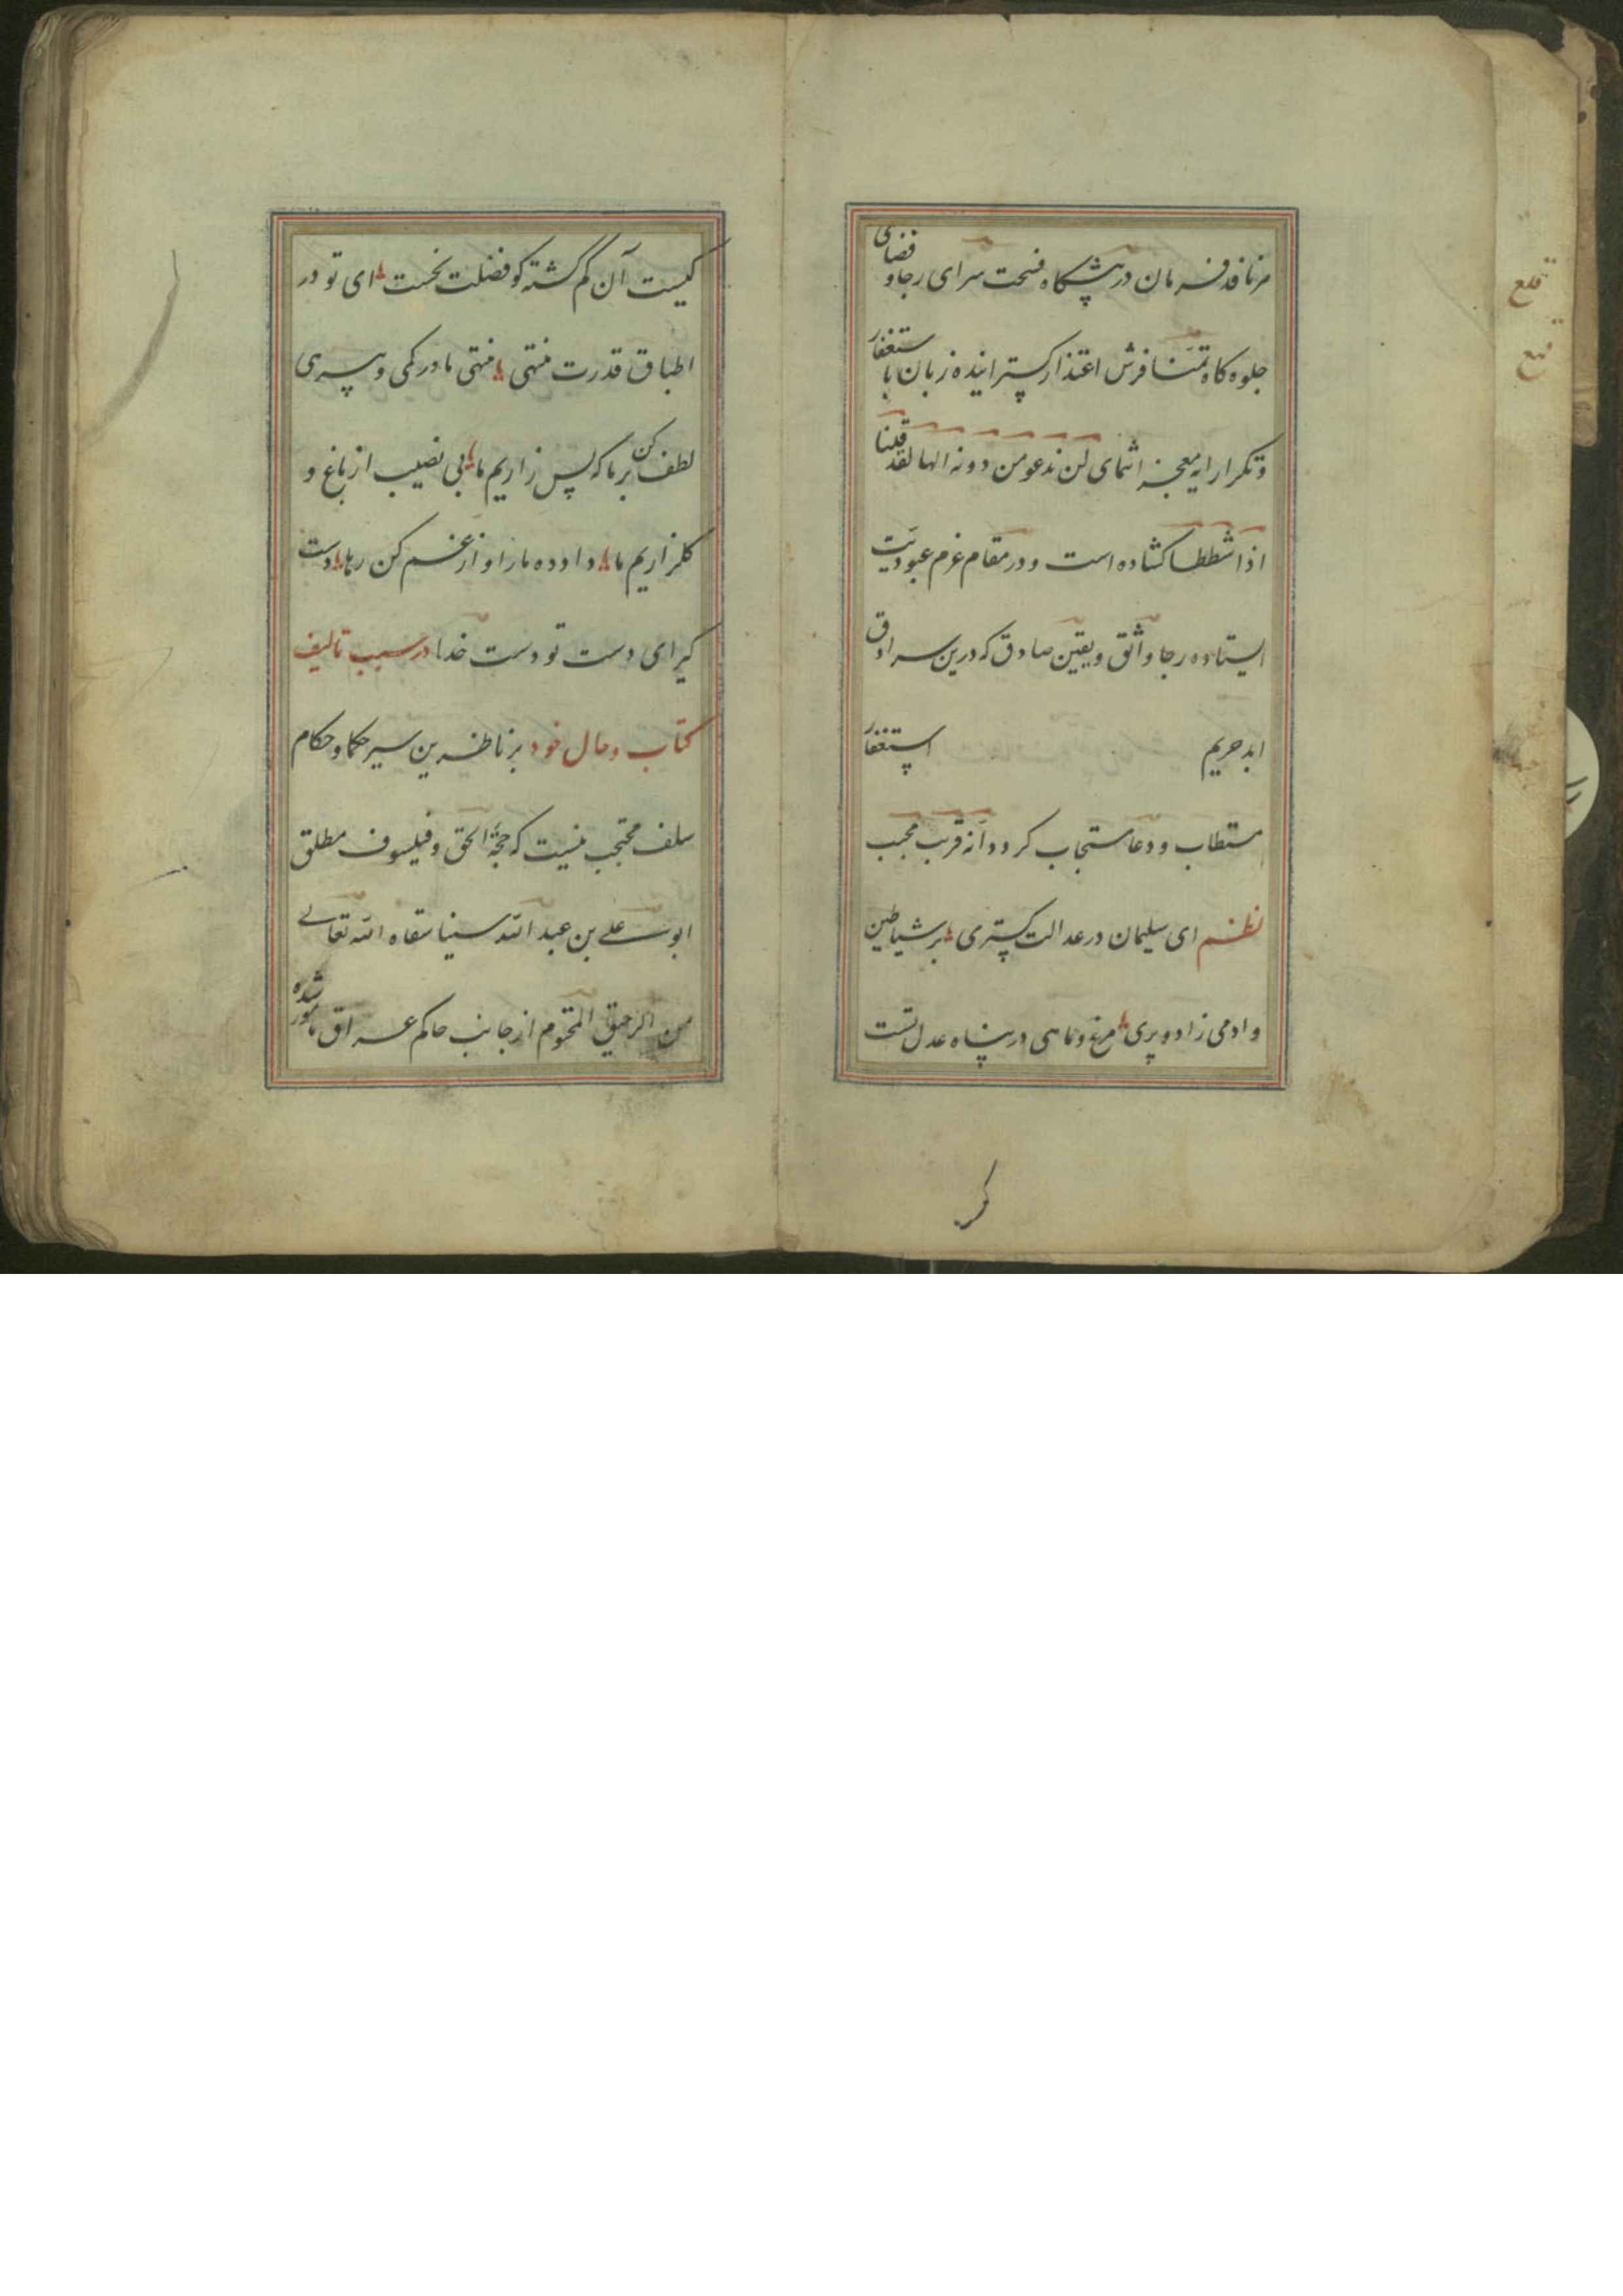 مر نافد فرمان در پیشگاه فسحت سرای رجا و فضای
جلوه کاه تمنا فرش اعتذار گسترانیده زبان با ستغفار
و تکرار ایه معجز انتمای لن ندعو من دونه الها لقد قلنا
اذا شططا کشاده است و در مقام غرم عبودیت
ایستاده رجا واثق و یقین صادق که درین سرادق
ابد حریم استغفار
مستطاب و دعا مستجاب کردد انه قریب مجیب
نظم ای سلیمان در عدالت گستری بر شیاطین
و ادمی زاد و پری مرغ و ماهی در پناه عدل تست
کیست آن گم گشته کو فضلت نجست ای تو در
اطباق قدرت منتهی منتهی ما در کمی و پسری
لطف کن بر ما که بس زاریم ما بی نصیب از باغ و
کلزاریم ما داد ده ما را و از غم کن رها دست
کیر ای دست تو دست خدا در سبب تالیف
کتاب و حال خود بر ناظرین سیر حکما و حکام
سلف محتجب نیست که حجة الحق و فیلسوف مطلق
ابو علی بن عبد الله سینا سقاه الله تعالی
من الرحیق المختوم از جانب حاکم عراق مامور شده